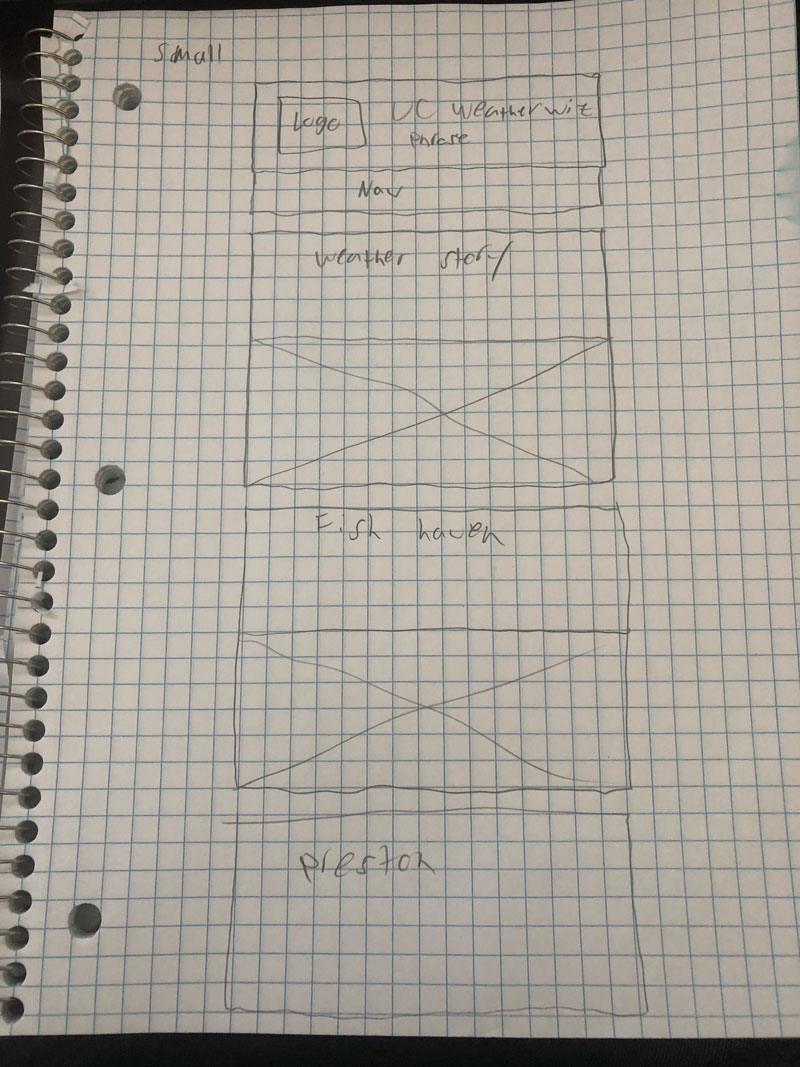 Small
Logo
UC weather wiz
phrase
Nav
weather story
Fish haven
preston